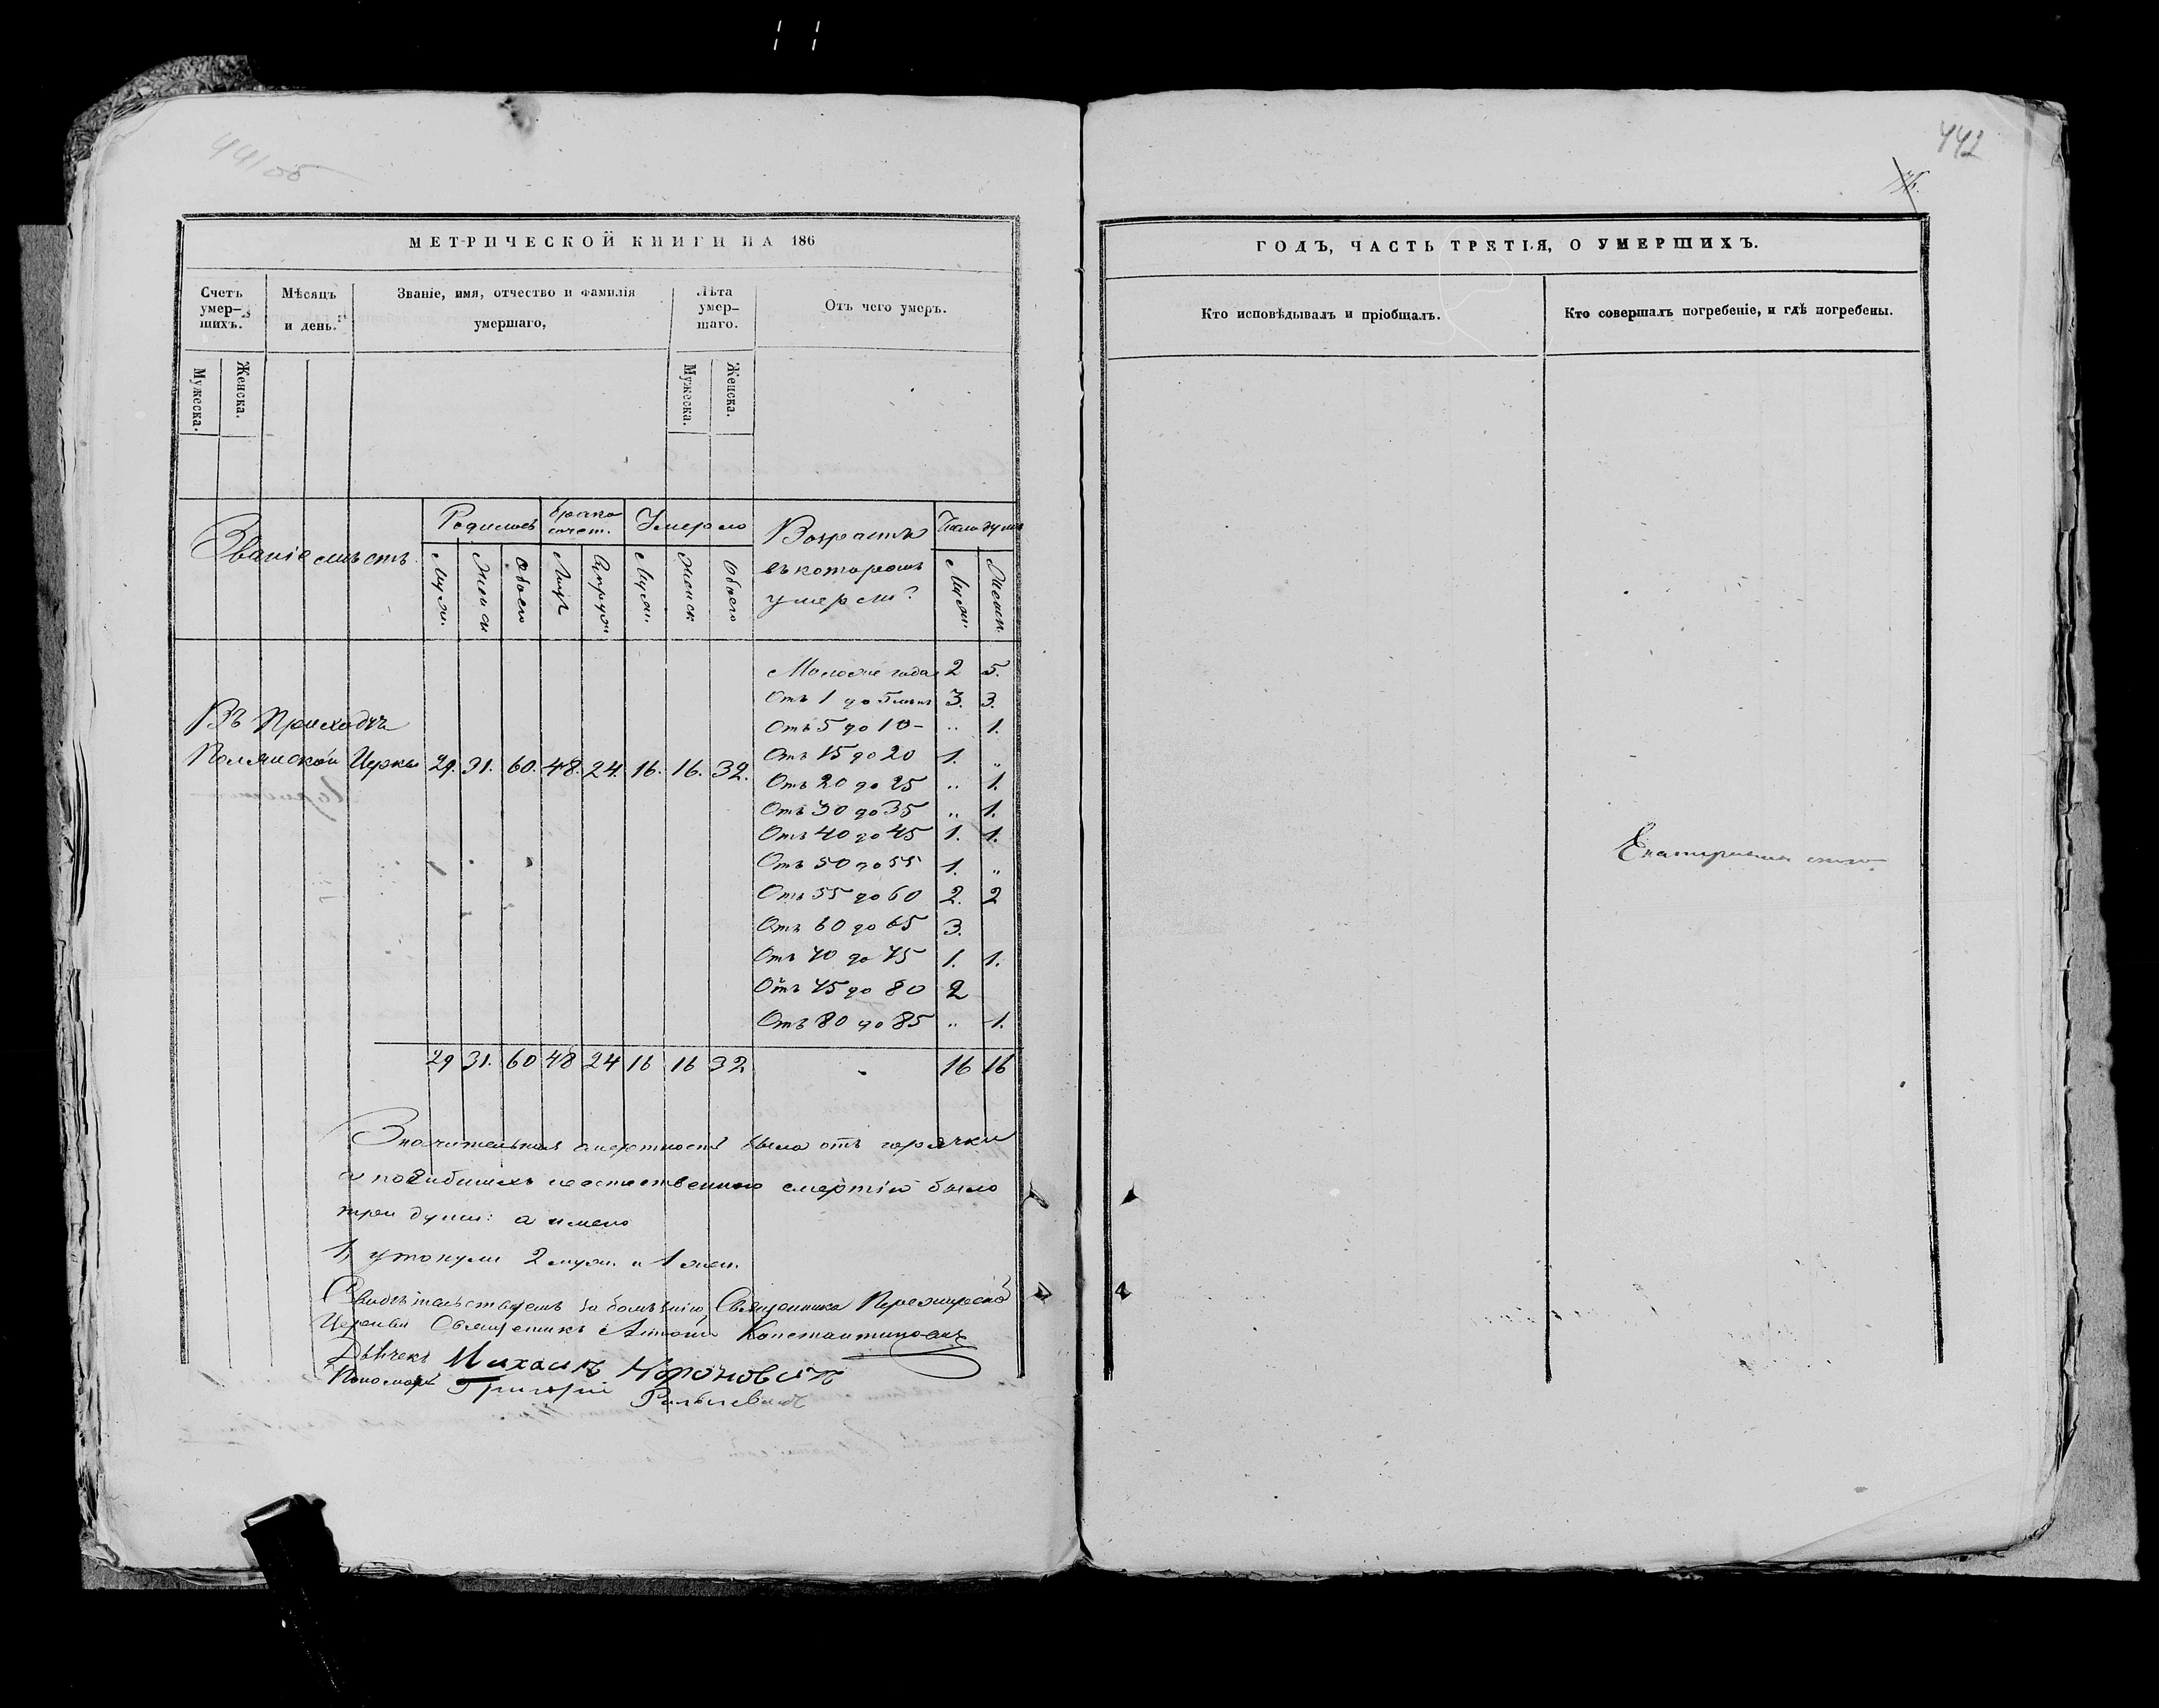 442
МЕТРИЧЕСКОЙ КНИГИ НА 186
Счетъ умер-шихъ.
Мѣсяцъ и день.
Званіе, имя, отчество и фамилія умершаго,
Лѣта умер-шаго.
Отъ чего умеръ.
Мужеска. Женска. Мужеска. Женска.
Званіе мѣстъ
Родилось
Умерло
Возрастъ
въ которомъ
умерли?
Число душъ
Муж. Женск Обоего Муж. Женск Обоего Муж. Женск.
Въ Приходѣ
Полянской Церкви 29. 31. 60. 48. 24. 16. 16. 32.
Моложе года 2 5.
Отъ 1 до 5 лѣтъ 3. 3.
Отъ 5 до 10 - „ 1.
Отъ 15 до 20 1. „
Отъ 20 до 25 „ 1.
Отъ 30 до 35 „ 1.
Отъ 40 до 45 1. 1.
Отъ 50 до 55 1. „
Отъ 55 до 60 2. 2
Отъ 60 до 65 3.
Отъ 70 до 75 1. 1.
Отъ 75 до 80 2
Отъ 80 до 85 „ 1.
29 31. 60 48 24 16 16 32 16 16
Значительная смертность была отъ горячки
а погибшихъ неестественною смертію было
три души: а имено
1, утонули 2 муж. и 1 жен.
Свидѣтельствуемъ за болѣзнію Священника
Церкви Священникъ Антоній Константиновичъ
Дьячекъ Михаилъ
Пономарь Григорій
ГОДЪ, ЧАСТЬ ТРЕТІЯ, О УМЕРШИХЪ.
Кто исповѣдывалъ и пріобщалъ.
Кто совершалъ погребеніе, и гдѣ погребены.